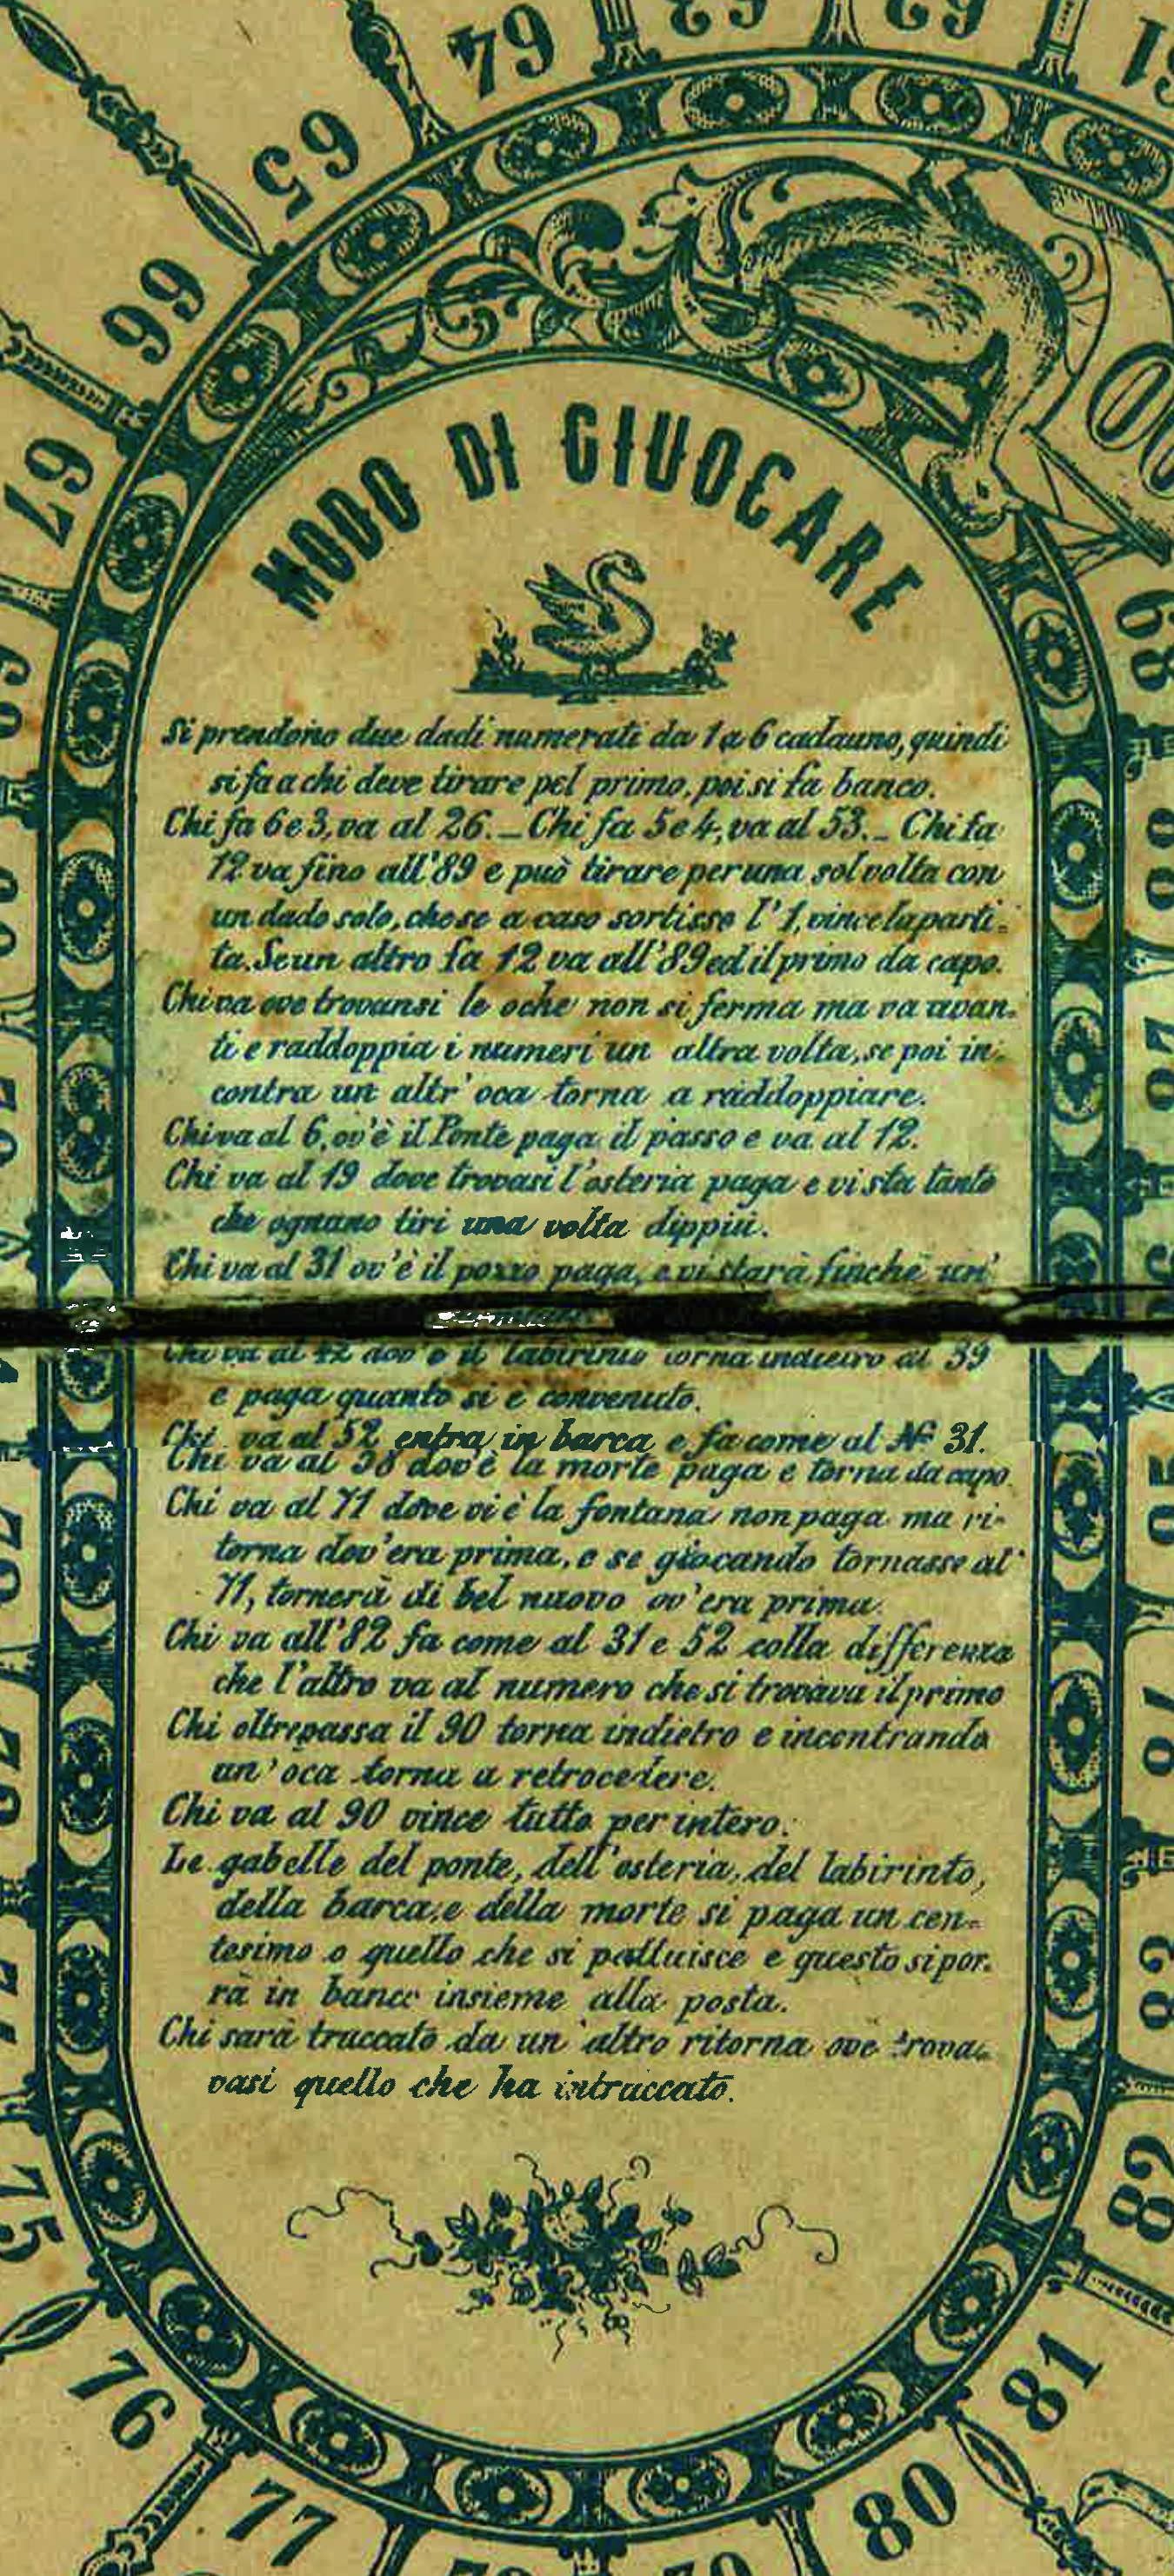 64
63
62
61
65
66
67
90
MODO DI GIUOCARE
Si prendono due dadi numerati da 1 a 6 cadauno, quindi
si fa a chi deve tirare pel primo, poi si fa banco.
Chi fa 6 e 3, va al 26. _ Chi fa 5 e 4, va al 53. _ Chi fa
12 va fino all'89 e può tirare per una sol volta con
un dado solo, che se a caso sortisse l'1, vince la parti=
ta. Se un altro fa 12 va all'89 ed il primo da capo.
Chi va ove trovansi le oche non si ferma ma va avan=
ti e raddoppia i numeri un altra volta, se poi in=
contra un altr'oca torna a raddoppiare.
Chi va al 6, ov'è il Ponte paga il passo e va al 12.
Chi va al 19 dove trovasi l'osteria paga e vi sta tanto
che ognuno tiri una volta dippiù.
Chi va al 31 ov'è il pozzo paga, e vi starà finchè un'
Chi va al 42 dov'è il labirinto torna indietro al 39
e paga quanto si è convenuto.
Chi va al 52 entra in barca e fa come al N.º 31.
Chi va al 58 dov'è la morte paga e torna da capo.
Chi va al 71 dove vi è la fontana non paga ma ri=
torna dov'era prima, e se giocando tornasse al
71, tornerà di bel nuovo ov'era prima.
Chi va all'82 fa come al 31 e 52 colla differenza
che l'altro va al numero che si trovava il primo
Chi oltrepassa il 90 torna indietro e incontrando
un'oca torna a retrocedere.
Chi va al 90 vince tutto per intero.
Le gabelle del ponte, dell'osteria, del labirinto,
della barca, e della morte si paga un cen=
tesimo o quello che si pattuisce e questo si por=
rà in banco insieme alla posta.
Chi sarà truccato da un'altro ritorna ove trova=
vasi quello che ha intruccato.
75
76
77
80
81
82
83